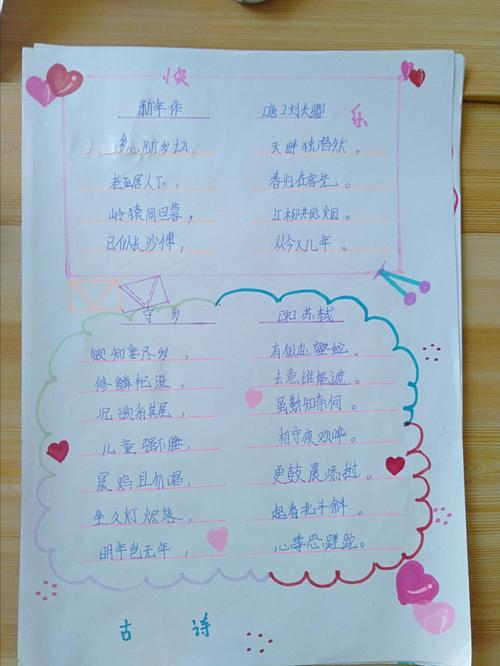 快
新年作 [唐]刘长卿
乐
乡心新岁切, 天畔独潸然。
老至居人下, 春归在客先。
岭猿同旦暮, 江柳共风烟。
已似长沙傅, 从今又几年。
守岁 [宋]苏轼
欲知垂尽岁, 有似赴壑蛇。
修鳞 没, 去意谁能遮。
况欲系其尾, 虽勤知奈何。
儿童强不睡, 相守夜欢哗。
晨鸡且勿唱, 更鼓晨添挝。
坐久灯烬落, 起看北斗斜。
明年岂无年, 心事恐蹉跎。
古诗